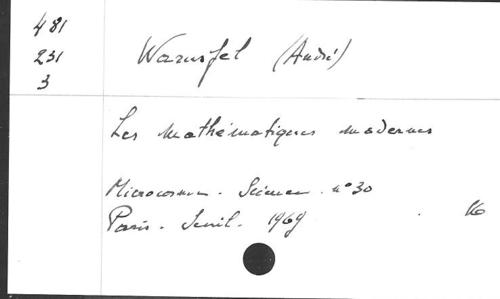 481
231
3
Warusfel (André)
Les mathématiques modernes
Microcosme. Sciences n° 30
Paris. Seuil. 1969. 16